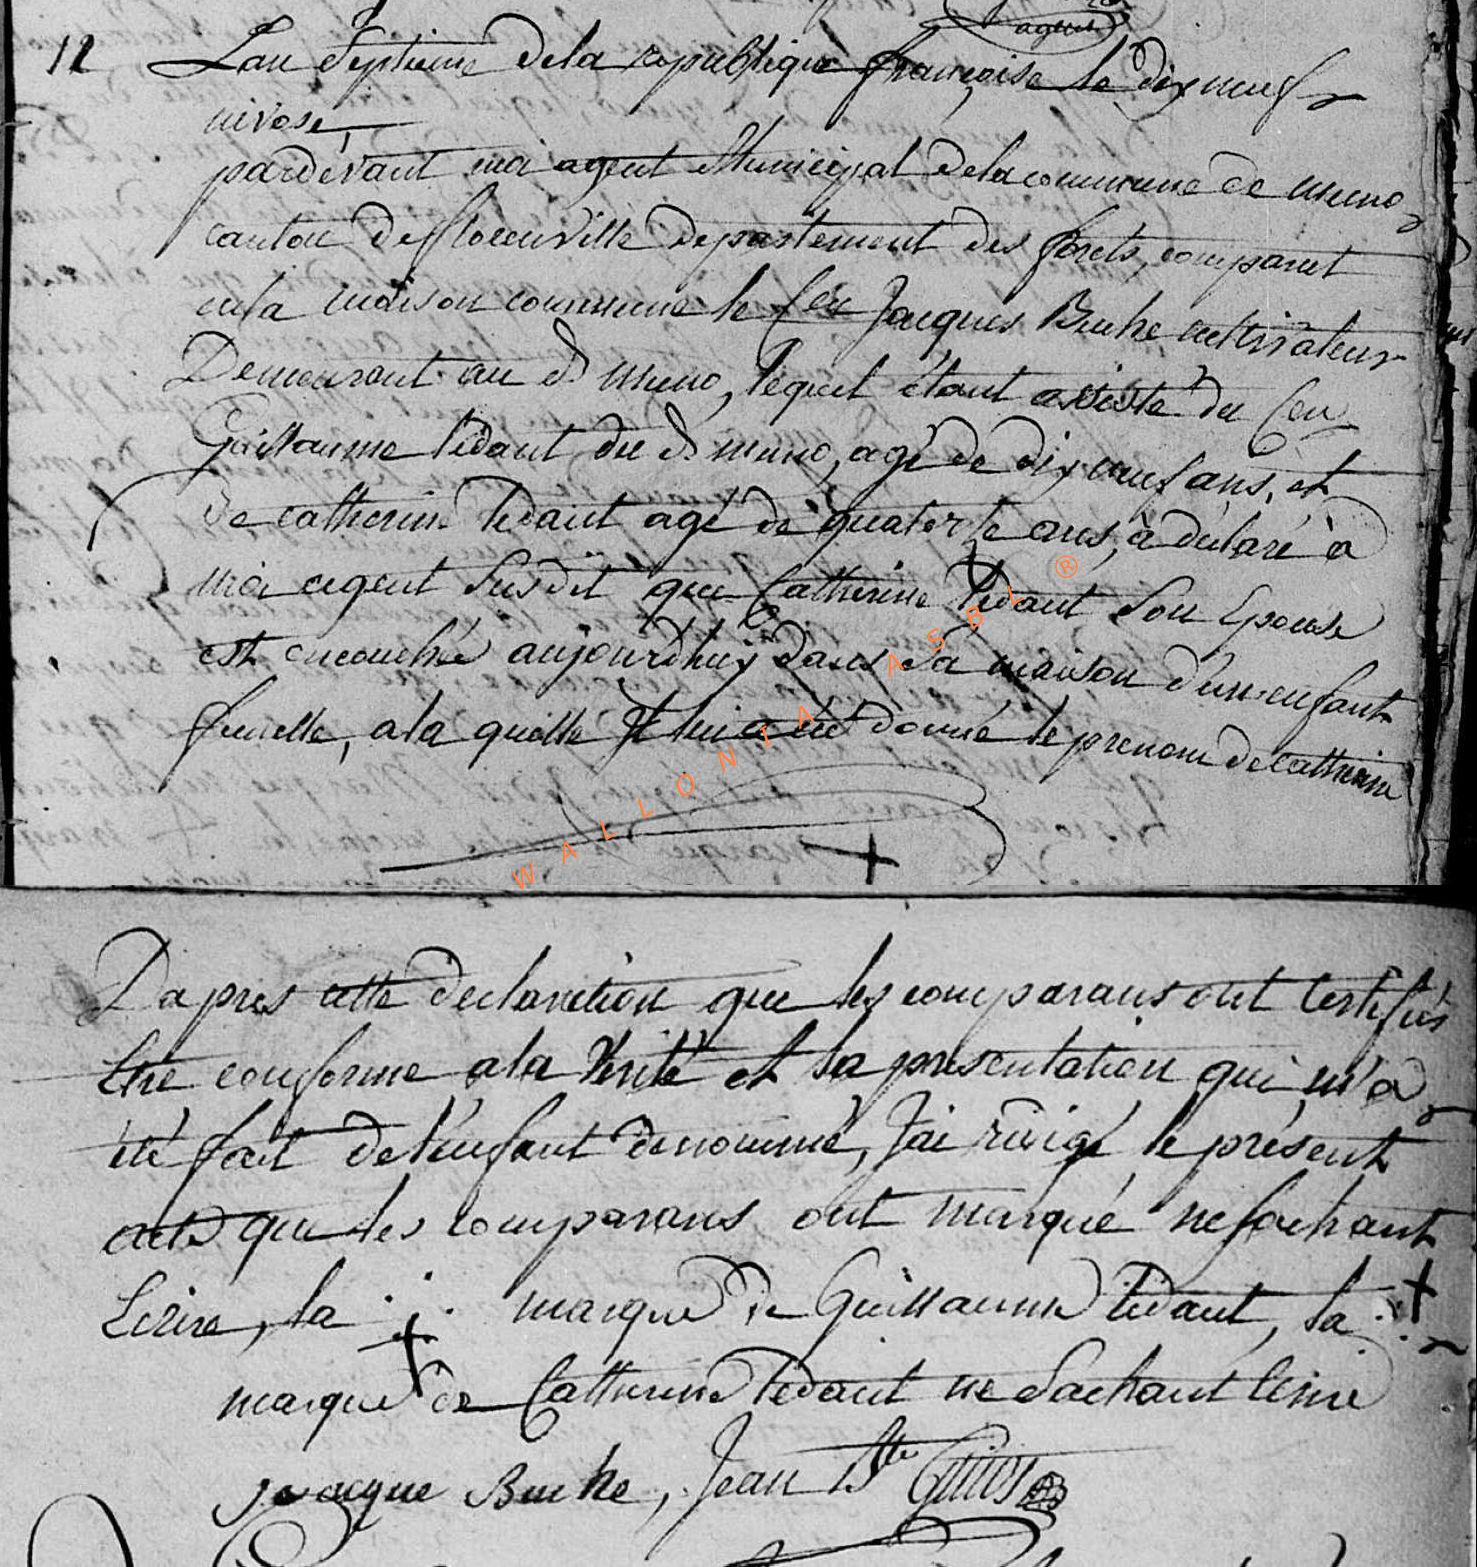 agent
12 Lan Septieme dela republique françoise le dix neuf
nivose,
pardevant moi agent Municipal dela commune de muno,
canton de florenville departement des forets, comparut
en la maison commune le Cen Jacques Buche cultivateur
Demeurant au d muno, lequel étant assisté du Cen
Guillaume lidant du d muno, agé de dix neuf ans, et
de catherine lidant agé de quatorze ans, à déclaré à
moi agent susdit que Catherine lidant son Epouse
est encouchée aujourdhuy dans sa maison d'un enfant
femelle, a la quelle Il lui a été donné le prenom de catherine
WALLONIA ASBL ®
Dapres cette declaration que les comparans ont certifiés
Etre conforme a la Verité et la presentation qui m'a
été fait de l'enfant denommé, J'ai rédigé le présent
acte que les comparans ont marqué ne sachant
Ecrire, la marque de Guillaume lidant, la
marque de Catherine lidant ne sachant Ecrire
jacque Buche, Jean Bte